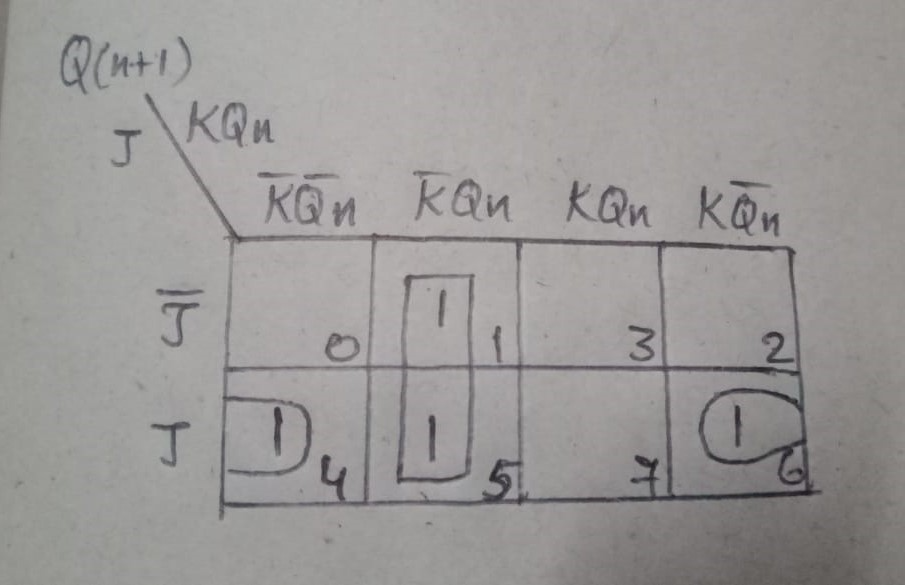 Q(n+1)
J KQn
K̅Q̅n K̅Qn KQn KQ̅n
J̅ 0 1 1 3 2
J 1 4 1 5 7 1 6